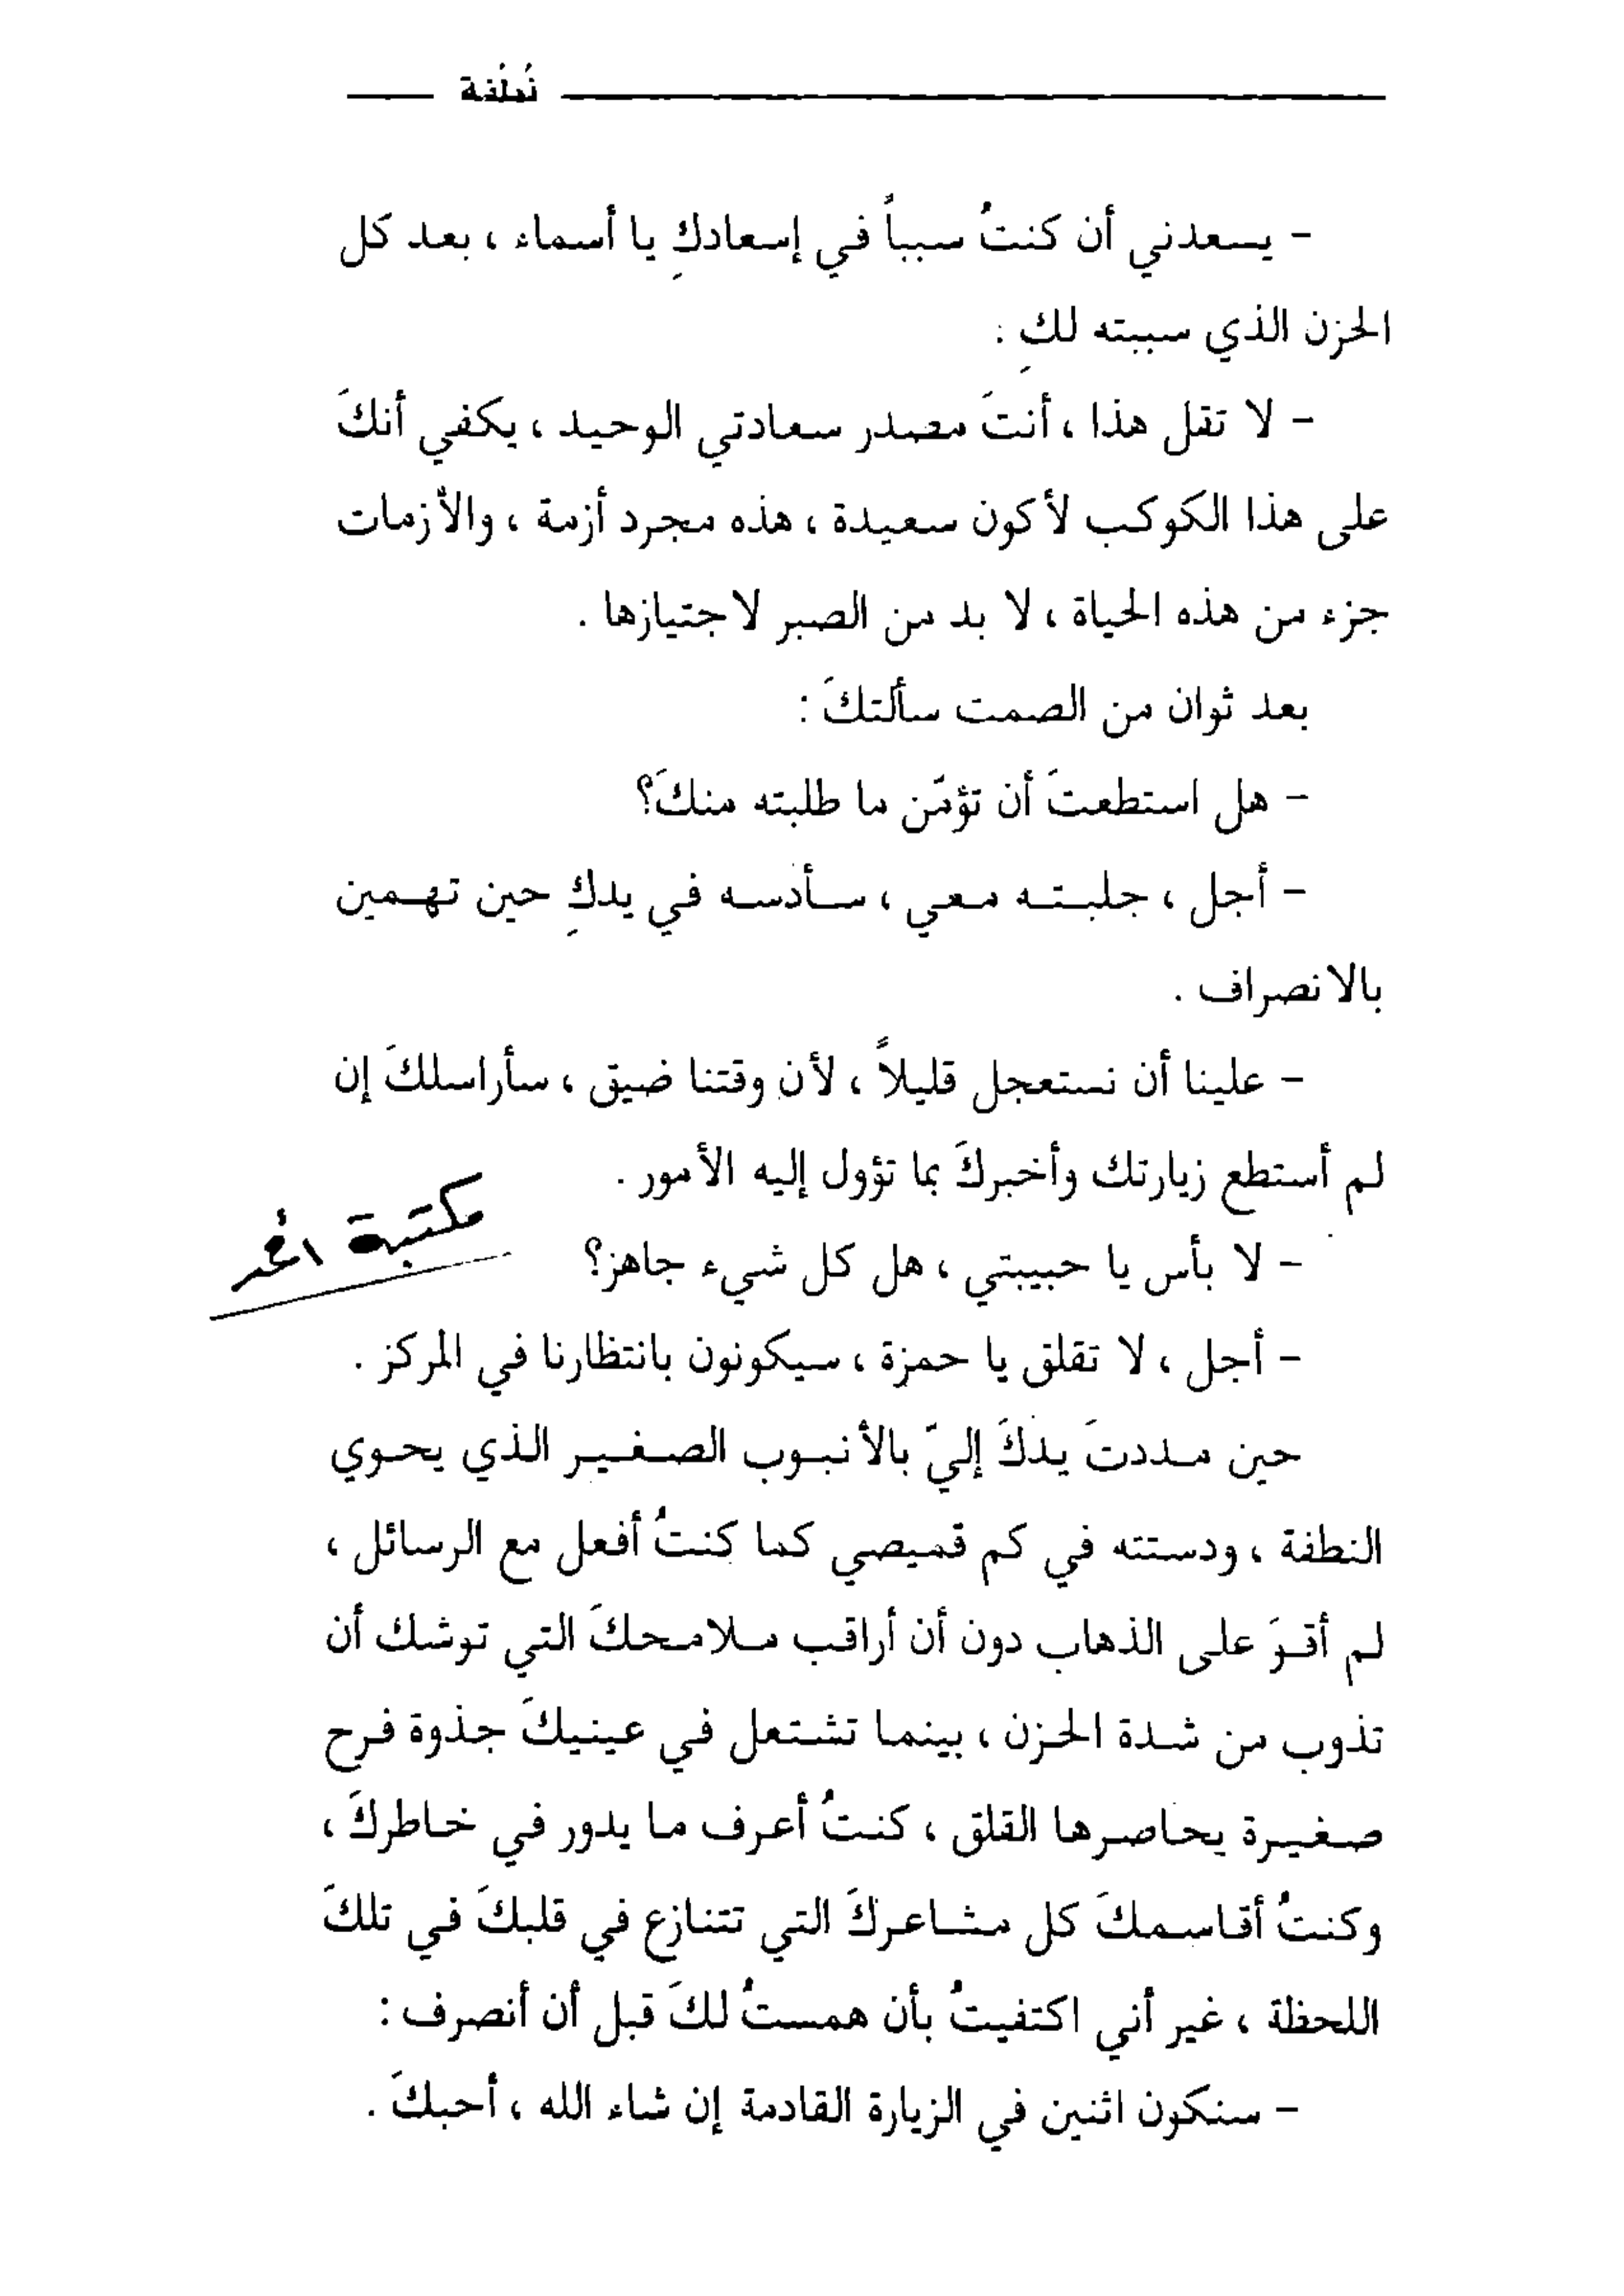 نُطْفة
- يسعدني أن كنتُ سبباً في إسعادكِ يا أسماء ، بعد كل
الحزن الذي سببته لكِ .
- لا تقل هذا ، أنتَ مصدر سعادتي الوحيد ، يكفي أنكَ
على هذا الكوكب لأكون سعيدة ، هذه مجرد أزمة ، والأزمات
جزء من هذه الحياة ، لا بد من الصبر لاجتيازها .
بعد ثوان من الصمت سألتكَ :
- هل استطعتَ أن تؤمّن ما طلبته منكَ؟
- أجل ، جلبته معي ، سأدسه في يدكِ حين تهمين
بالانصراف .
- علينا أن نستعجل قليلاً ، لأن وقتنا ضيق ، سأراسلكَ إن
لم أستطع زيارتك وأخبركَ بما تؤول إليه الأمور .
- لا بأس يا حبيبتي ، هل كل شيء جاهز؟
مكتبة
- أجل ، لا تقلق يا حمزة ، سيكونون بانتظارنا في المركز .
حين مددتَ يدكَ إليّ بالأنبوب الصغير الذي يحوي
النطفة ، ودسته في كم قميصي كما كنتُ أفعل مع الرسائل ،
لم أقوَ على الذهاب دون أن أراقب ملامحكَ التي توشك أن
تذوب من شدة الحزن ، بينما تشتعل في عينيكَ جذوة فرح
صغيرة يحاصرها القلق ، كنتُ أعرف ما يدور في خاطركَ ،
وكنتُ أقاسمكَ كل مشاعركَ التي تتنازع في قلبكَ في تلكَ
اللحظة ، غير أني اكتفيتُ بأن همستُ لكَ قبل أن أنصرف :
- سنكون اثنين في الزيارة القادمة إن شاء الله ، أحبكَ .